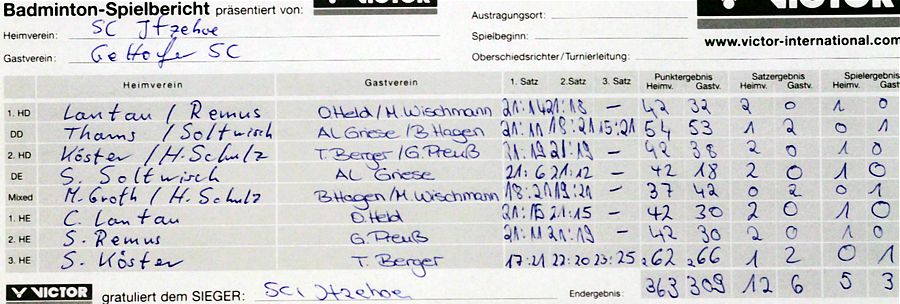 Badminton-Spielbericht präsentiert von: VICTOR
Heimverein: SC Itzehoe
Gastverein: Gettorfer SC
Austragungsort:
Spielbeginn:
Oberschiedsrichter/Turnierleitung:
www.victor-international.com
Heimverein Gastverein 1. Satz 2. Satz 3. Satz Punktergebnis Heimv. Gastv. Satzergebnis Heimv. Gastv. Spielergebnis Heimv. Gastv.
1. HD Lantau / Remus O.Held / M. Wischmann 21:14 21:18 – 42 32 2 0 1 0
DD Thams / Soltwisch AL Griese / B Hagen 21:11 18:21 15:21 54 53 1 2 0 1
2. HD Köster / H. Schulz T. Berger / G. Preuß 21:19 21:19 – 42 38 2 0 1 0
DE S. Soltwisch AL Griese 21:6 21:12 – 42 18 2 0 1 0
Mixed M. Groth / H. Schulz B Hagen / M. Wischmann 18:21 19:21 – 37 42 0 2 0 1
1. HE C. Lantau O. Held 21:15 21:15 – 42 30 2 0 1 0
2. HE S. Remus G. Preuß 21:11 21:19 – 42 30 2 0 1 0
3. HE S. Köster T. Berger 17:21 22:20 23:25 62 66 1 2 0 1
VICTOR gratuliert dem SIEGER: SC Itzehoe Endergebnis: 363 309 12 6 5 3